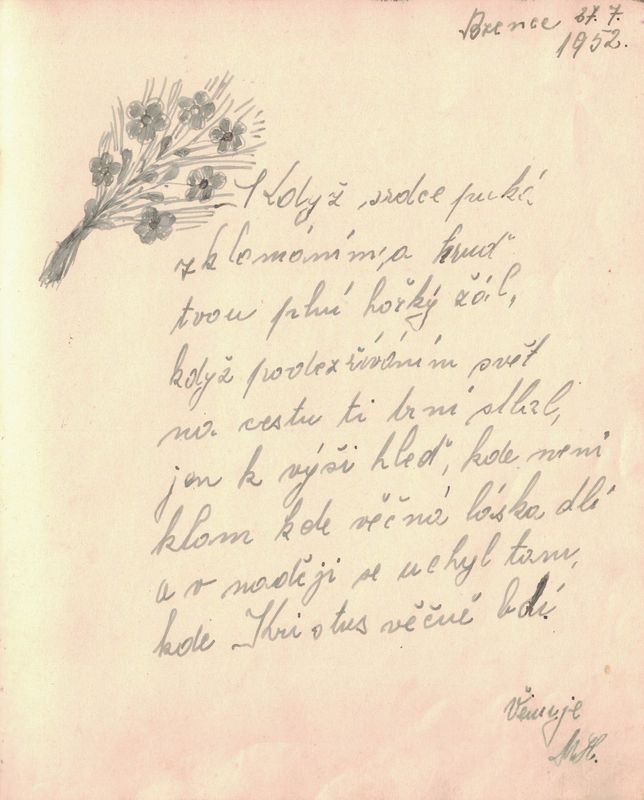 Brence 27. 7.
1952.
Když srdce puká
zklamáním, a hruď
tvou plní hořký žál,
když podezříváním svět
na cestu ti trní stlal,
jen k výši hleď, kde není
klam kde věčná láska dlí
a v naději se uchyl tam,
kde Kristus věčně bdí
Věnuje
M.H.